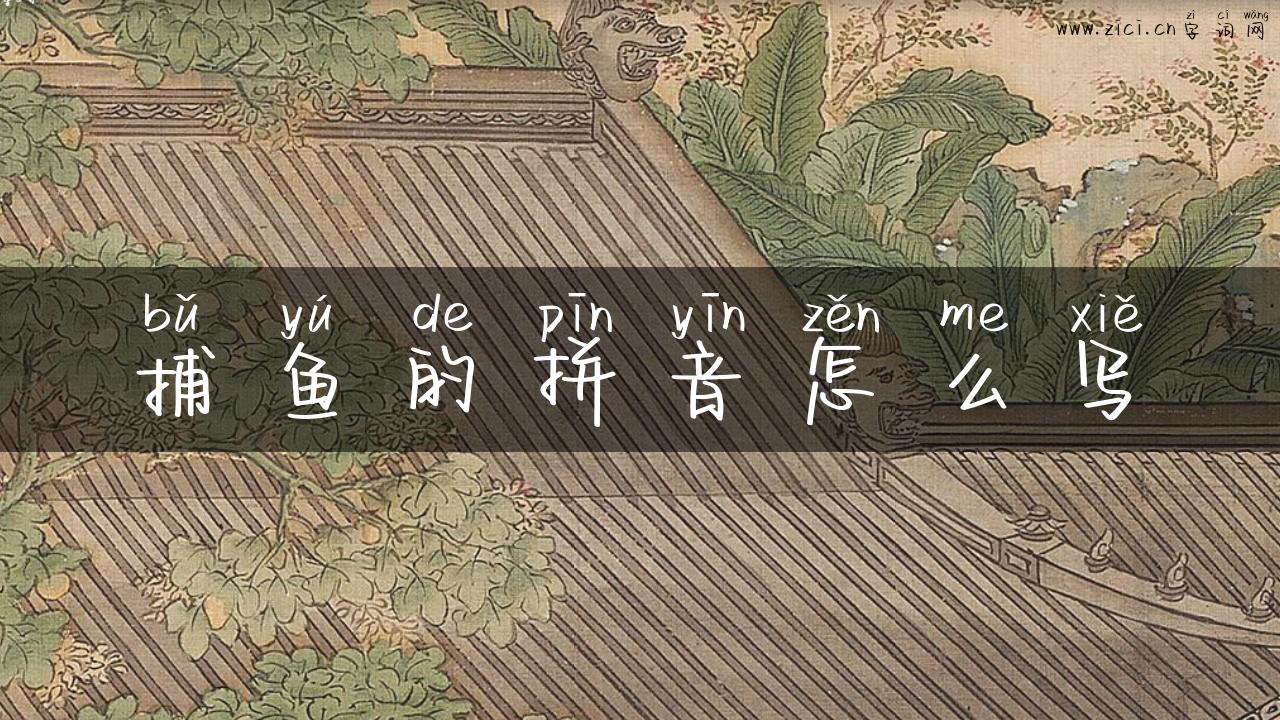 zì cí wǎng
www.zici.cn 字词网
bǔ yú de pīn yīn zěn me xiě
捕鱼的拼音怎么写